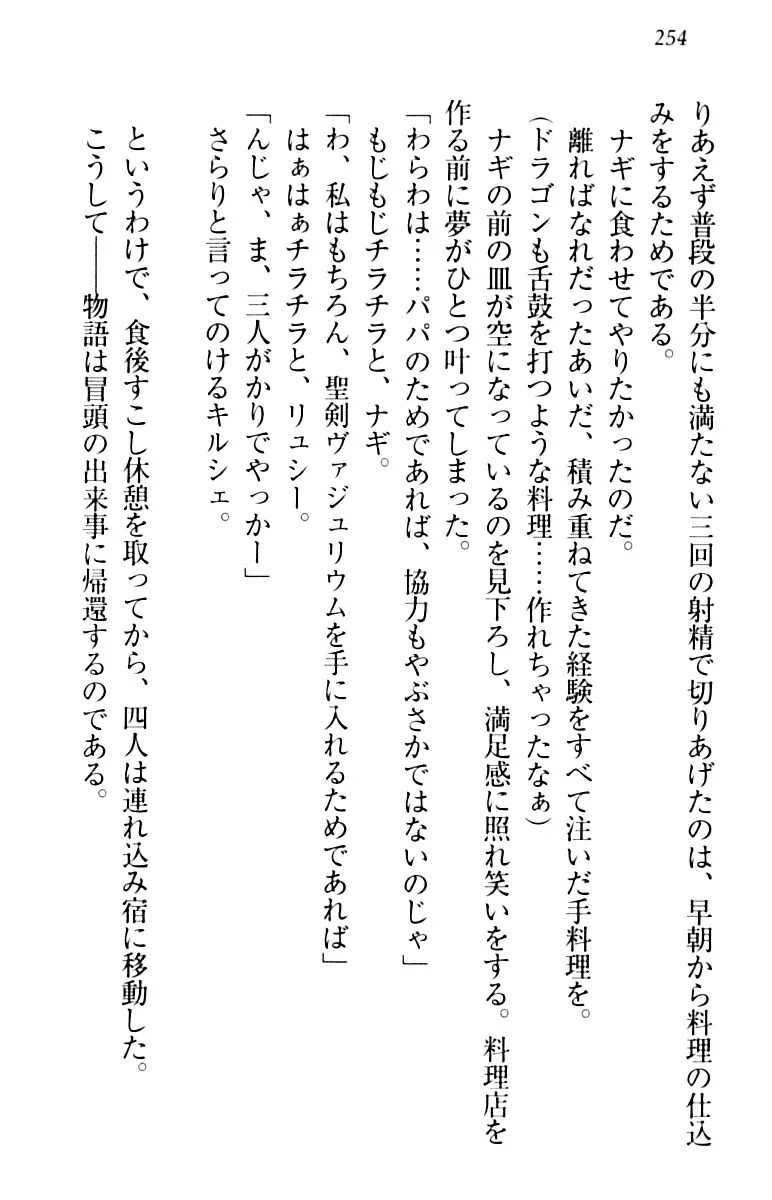 254
りあえず普段の半分にも満たない三回の射精で切りあげたのは、早朝から料理の仕込
みをするためである。
ナギに食わせてやりたかったのだ。
離ればなれだったあいだ、積み重ねてきた経験をすべて注いだ手料理を。
（ドラゴンも舌鼓を打つような料理……作れちゃったなぁ）
ナギの前の皿が空になっているのを見下ろし、満足感に照れ笑いをする。料理店を
作る前に夢がひとつ叶ってしまった。
「わらわは……パパのためであれば、協力もやぶさかではないのじゃ」
もじもじチラチラと、ナギ。
「わ、私はもちろん、聖剣ヴァジュリウムを手に入れるためであれば」
はぁはぁチラチラと、リュシー。
「んじゃ、ま、三人がかりでやっかー」
さらりと言ってのけるキルシェ。
というわけで、食後すこし休憩を取ってから、四人は連れ込み宿に移動した。
こうして――物語は冒頭の出来事に帰還するのである。